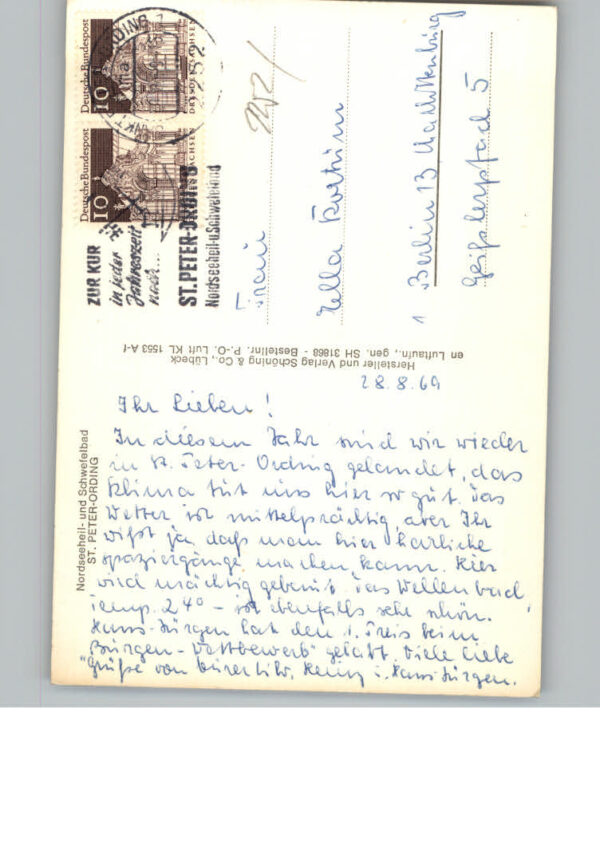 Deutsche Bundespost
10
DRESDEN/SACHSEN
Deutsche Bundespost
10
SACHSEN
2252
ZUR KUR
in jeder
Jahreszeit
nach...
ST. PETER-ORDING
Nordseeheil-u Schwefelbad
Frau
1 Berlin 13 Charlottenburg
5
Hersteller und Verlag Schöning & Co., Lübeck
en Luftaufn., gen. SH 31868 - Bestellnr. P.-O. Luft KL 1553 A-f
Nordseeheil- und Schwefelbad
ST. PETER-ORDING
28.8.69
Ihr Lieben!
In diesem Jahr sind wir wieder
in St. Peter-Ording gelandet, das
Klima tut uns hier so gut. Das
Wetter ist mittelprächtig, aber Ihr
wißt ja, daß man hier herrliche
Spaziergänge machen kann. Hier
wird mächtig gebaut. Das Wellenbad,
Temp. 24° - ist ebenfalls sehr schön.
Hans-Jürgen hat den 1. Preis beim
Burgen-Wettbewerb" gehabt. Viele liebe
Grüße von Hans Jürgen.